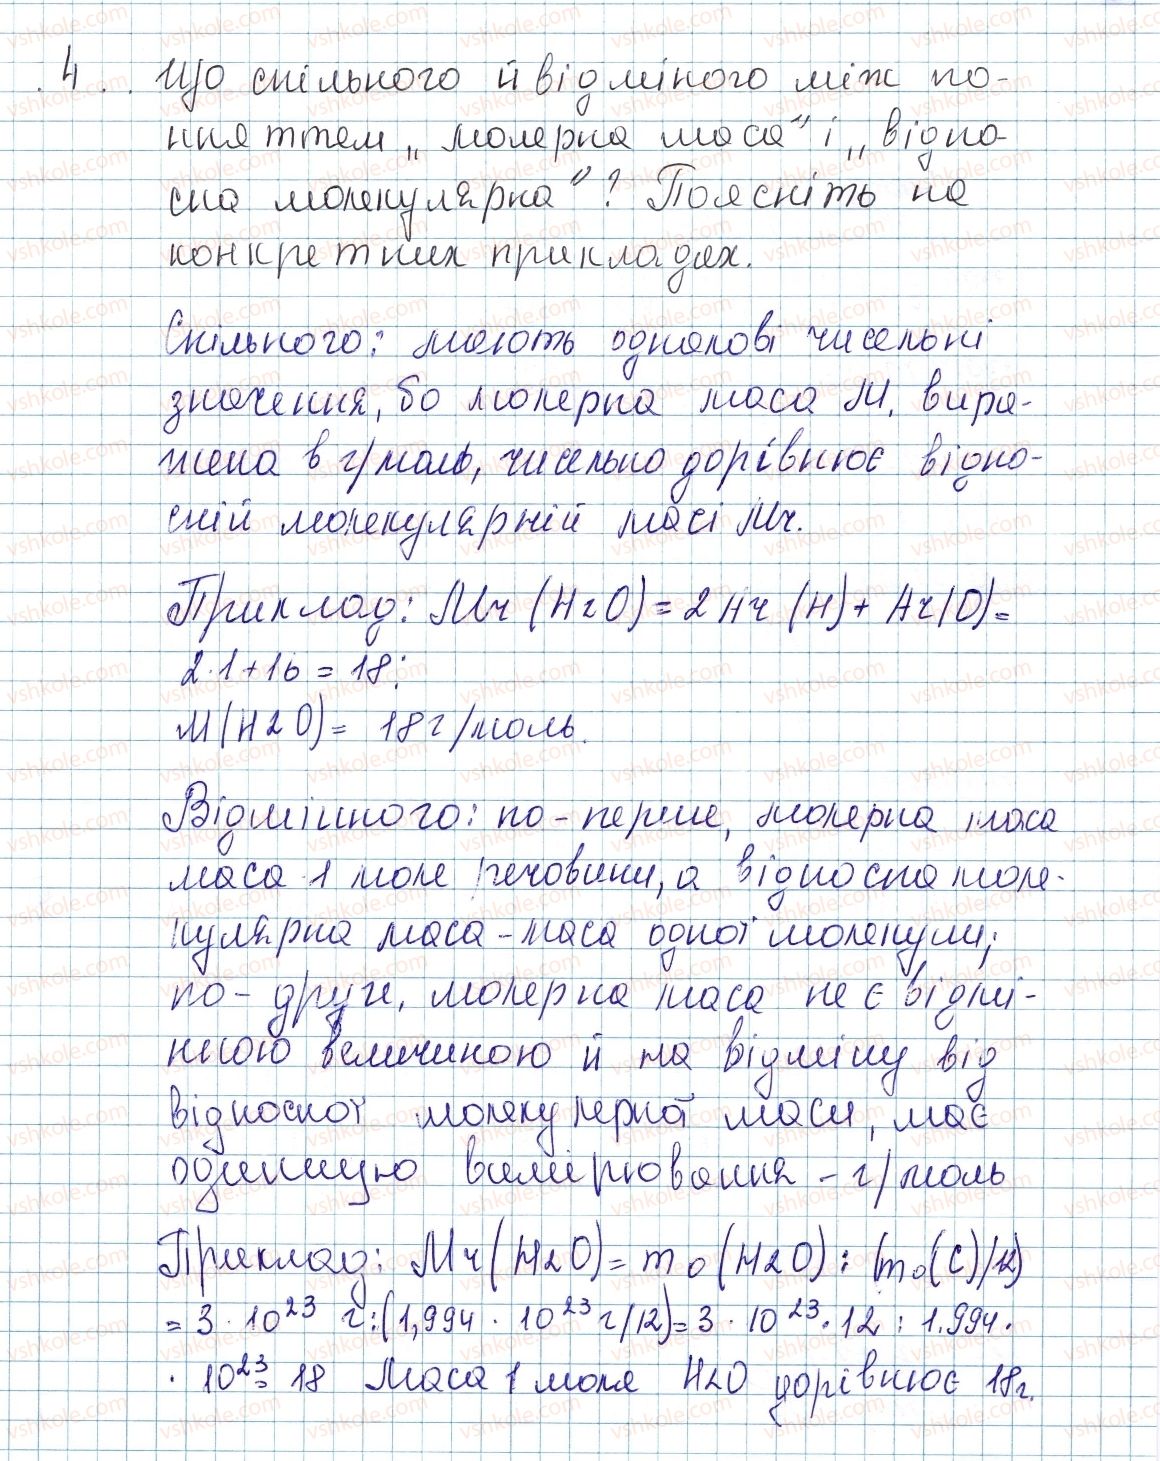 4. Що спільного й відміного між по-
няттем „молярна маса" і „відно-
сна молекулярна"? Поясніть на
конкретних прикладах.
Спільного: мають однакові чисельні
значення, бо молярна маса M, вира-
жена в г/моль, чисельно дорівнює відно-
сній молекулярній масі Mr.
Приклад: Mr (H2O) = 2 Ar (H) + Ar (O) =
2·1+16 = 18;
M (H2O) = 18 г/моль.
Відмінного: по-перше, молярна маса
маса 1 моля речовини, а відносна моле-
кулярна маса - маса одної молекули;
по-друге, молярна маса не є відмі-
нною величиною й на відміну від
відносної молекулярної маси, має
одиницю вимірювання - г/моль
Приклад: Mr (H2O) = m0 (H2O) : (m0(C)/12)
= 3 · 10²³ г:(1,994 · 10²³ г/12) = 3 · 10²³ · 12 : 1.994 ·
· 10²³ = 18 Маса 1 моля H2O дорівнює 18г.